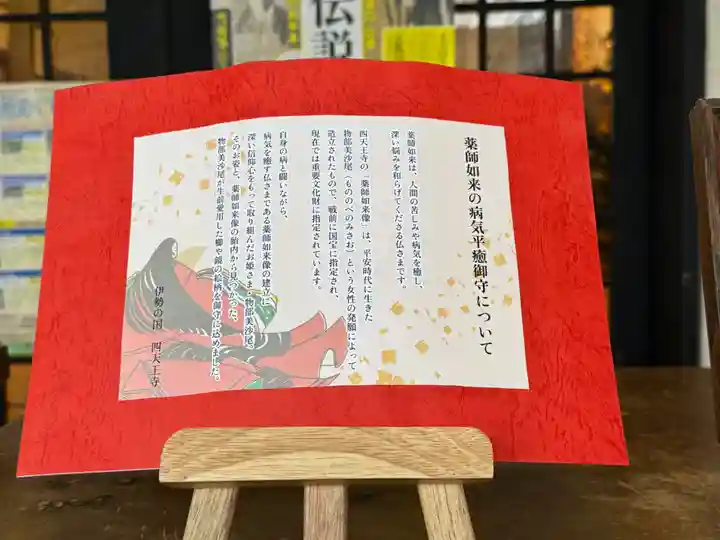 伝説
薬師如来の病気平癒御守について
薬師如来は、人間の苦しみや病気を癒し、
深い悩みを和らげてくださる仏さまです。
四天王寺の「薬師如来像」は、平安時代に生きた
物部美沙尾(もののべのみさお)という女性の発願によって
造立されたもので、戦前に国宝に指定され、
現在では重要文化財に指定されています。
自身の病と闘いながら、
病気を癒す仏さまである薬師如来像の建立に
深い信仰心をもって取り組んだお姫さま・物部美沙尾。
そのお姿と、薬師如来像の胎内から見つかった、
物部美沙尾が生前愛用した櫛や鏡の絵柄を御守に込めました。
伊勢の国 四天王寺